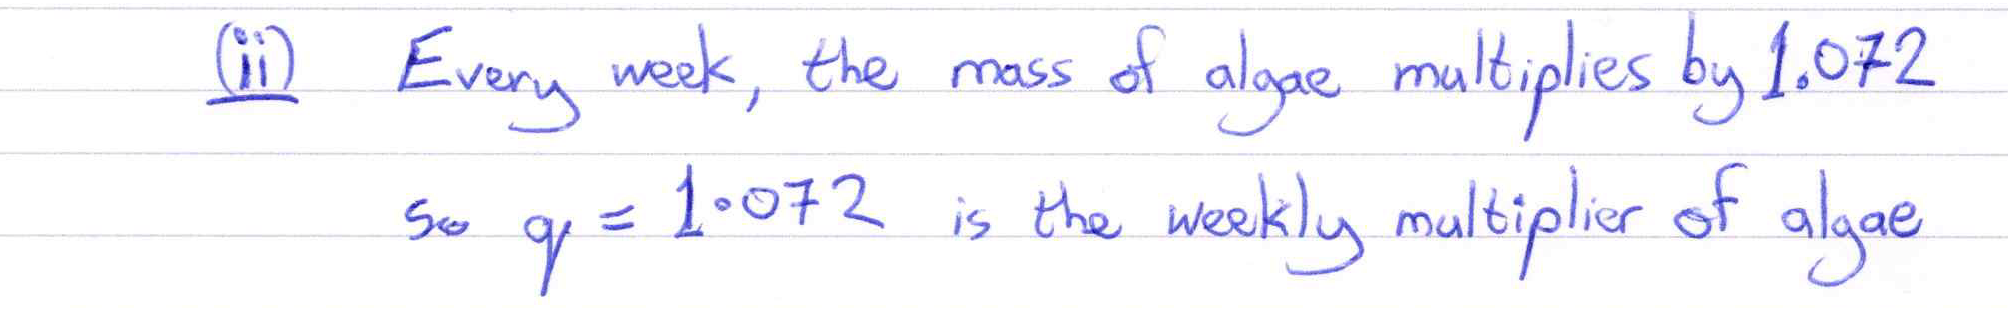 (ii) Every week, the mass of algae multiplies by 1.072
so q = 1.072 is the weekly multiplier of algae